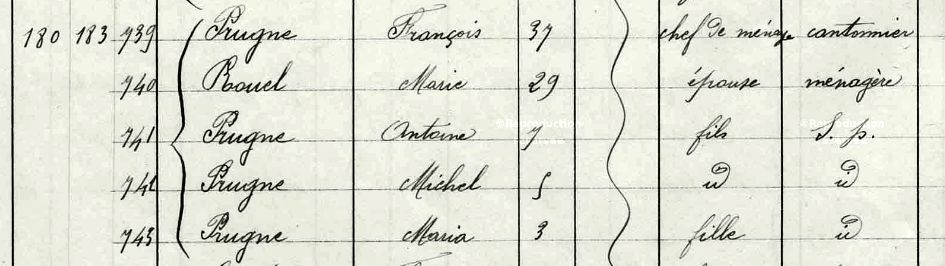 180 183 739 Prugne François 37 chef de ménage cantonnier
740 Rouel Marie 29 épouse ménagère
741 Prugne Antoine 7 fils S. p.
742 Prugne Michel 5 id id
743 Prugne Maria 3 fille id